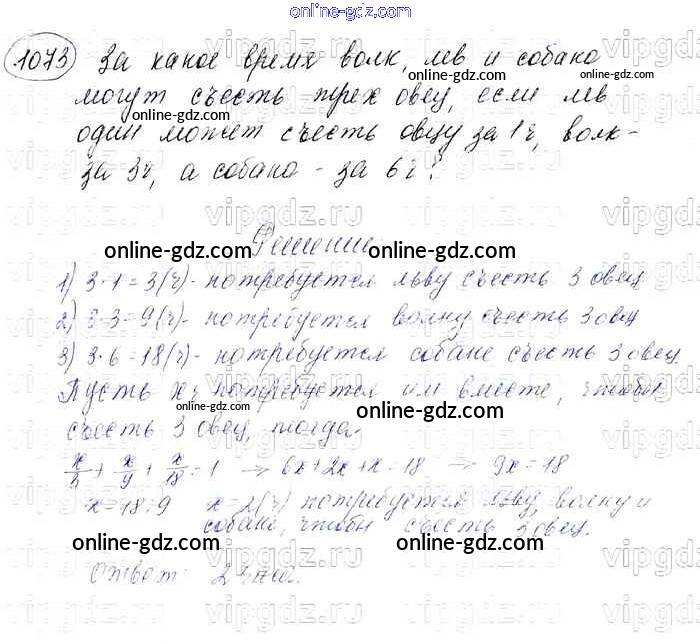 online-gdz.com
1073 За какое время волк, лев и собака
могут съесть трех овец, если лев
один может съесть овцу за 1ч, волк-
за 3ч, а собака - за 6ч?
Решение.
1) 3·1=3(ч)- потребуется льву съесть 3 овец
2) 3·3=9(ч)- потребуется волку съесть 3 овец
3) 3·6=18(ч)- потребуется собаке съесть 3 овец.
Пусть х ч потребуется им вместе, чтобы
съесть 3 овец, тогда
x/3 + x/9 + x/18 = 1 → 6x+2x+x=18 → 9x=18
x=18:9 x=2(ч) потребуется льву, волку и
собаке, чтобы съесть 3 овец.
Ответ: 2 часа.
online-gdz.com
online-gdz.com
online-gdz.com
online-gdz.com
online-gdz.com
online-gdz.com
online-gdz.com
online-gdz.com
online-gdz.com
vipgdz.ru